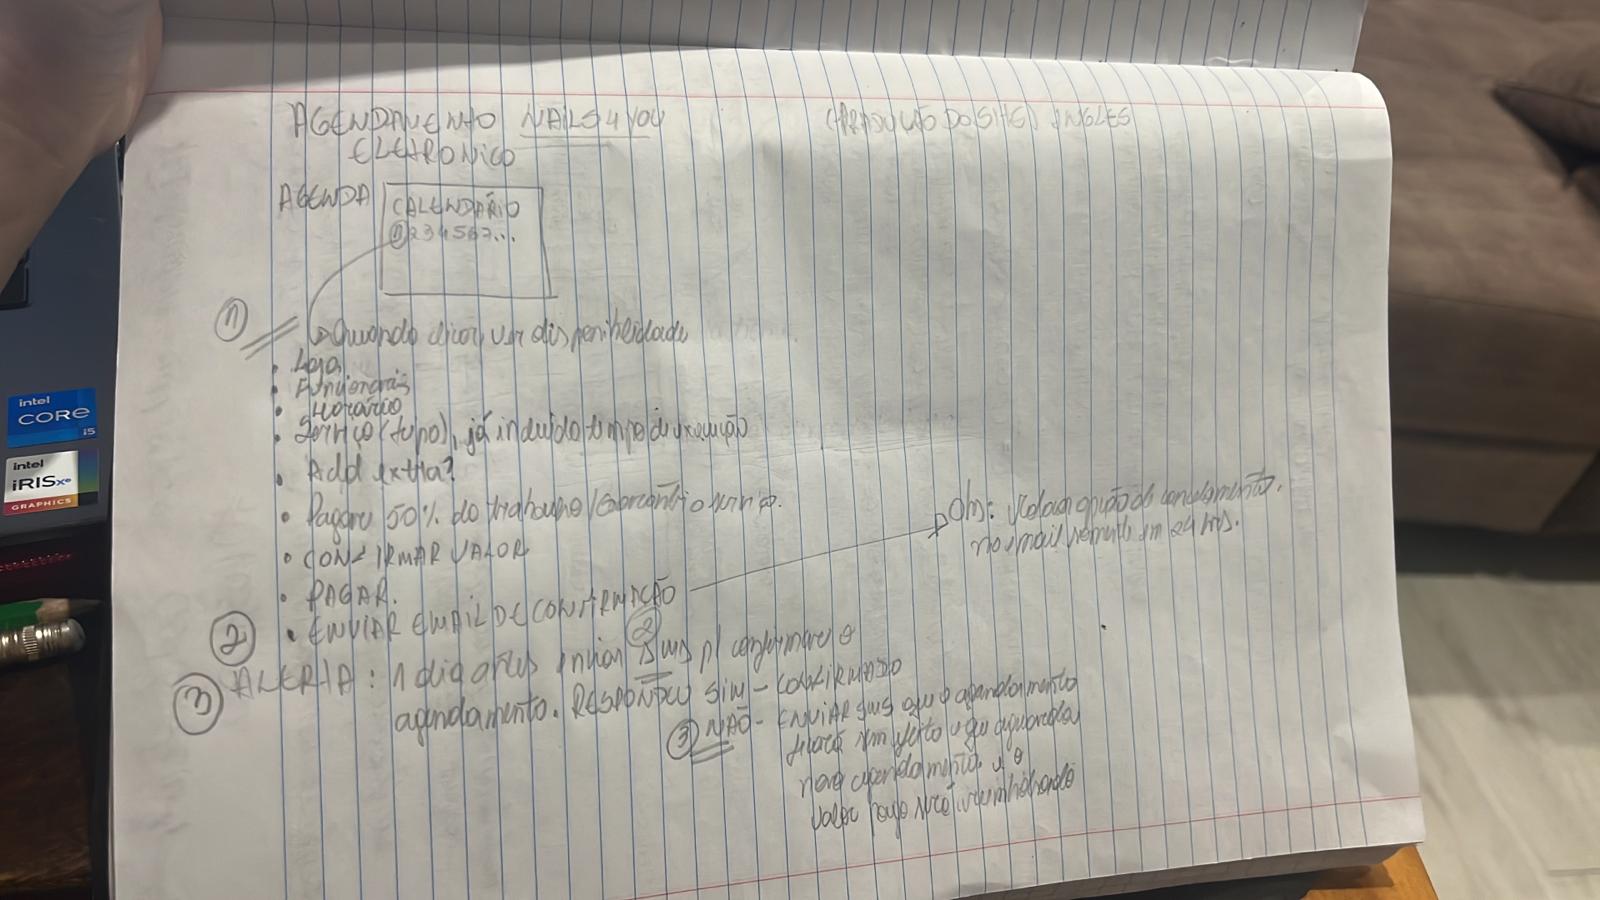 AGENDAMENTO NAILS 4 YOU
ELETRONICO
(TRADUÇÃO DO SITE) INGLES
AGENDA
CALENDÁRIO
1234567...
1
Quando clicar ver disponibilidade
• Loja
• Funcionários
• Horário
• Serviço (tipo), já incluido tempo de execução
• Add extra?
• Pagar 50% do trabalho/
• CONFIRMAR VALOR
• PAGAR.
2 • ENVIAR EMAIL DE CONFIRMAÇÃO
Obs: opção de cancelamento.
no email somente em 24 hrs.
3 ALERTA: 1 dia antes enviar 2 SMS p/ confirmar o
agendamento. RESPONDEU SIM - CONFIRMADO
3 NÃO - ENVIAR SMS que o agendamento
ficará sem efeito e que aguarda
novo agendamento e o
valor pago
intel
CORE
i5
intel
iRISxe
GRAPHICS